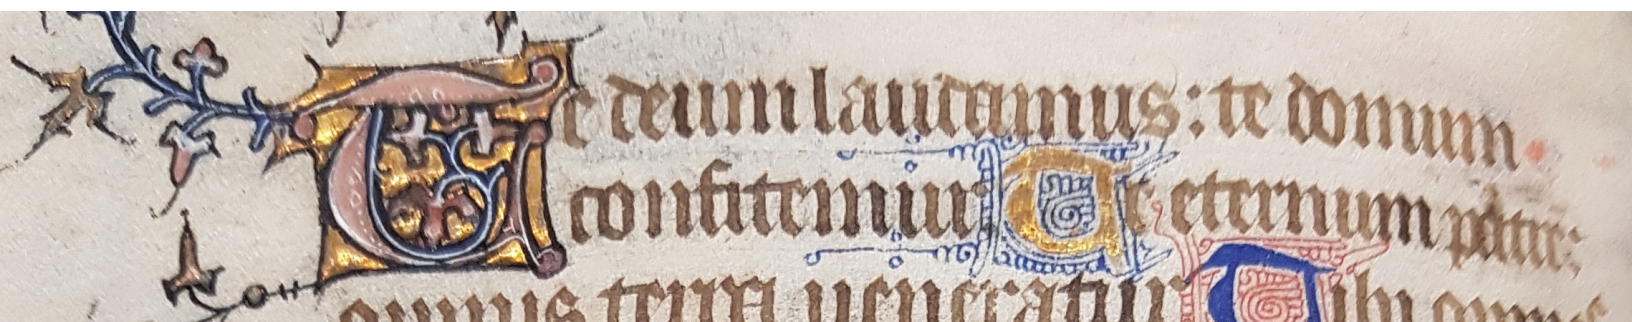 Te deum laudamus: te domum
confitemur Te eternum patre:
omnis terra veneratur Tibi omnes